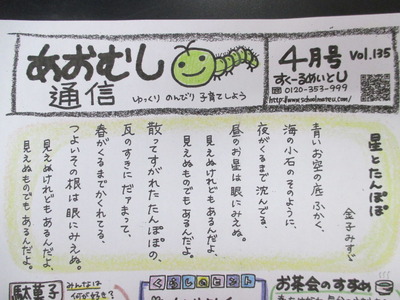 あおむし
通信
ゆっくり のんびり 子育てしよう
4月号 Vol.135
すくーるめいとU
0120-353-999
星とたんぽぽ
金子みすゞ
青いお空の底ふかく、
海の小石のそのように、
夜がくるまで沈んでる、
昼のお星は眼にみえぬ。
見えぬけれどもあるんだよ、
見えぬものでもあるんだよ。
散ってすがれたたんぽぽの、
瓦のすきにだァまって、
春がくるまでかくれてる、
つよいその根は眼にみえぬ。
見えぬけれどもあるんだよ、
見えぬものでもあるんだよ。
お茶会のすすめ
みんなは
何が好き?
駄菓子